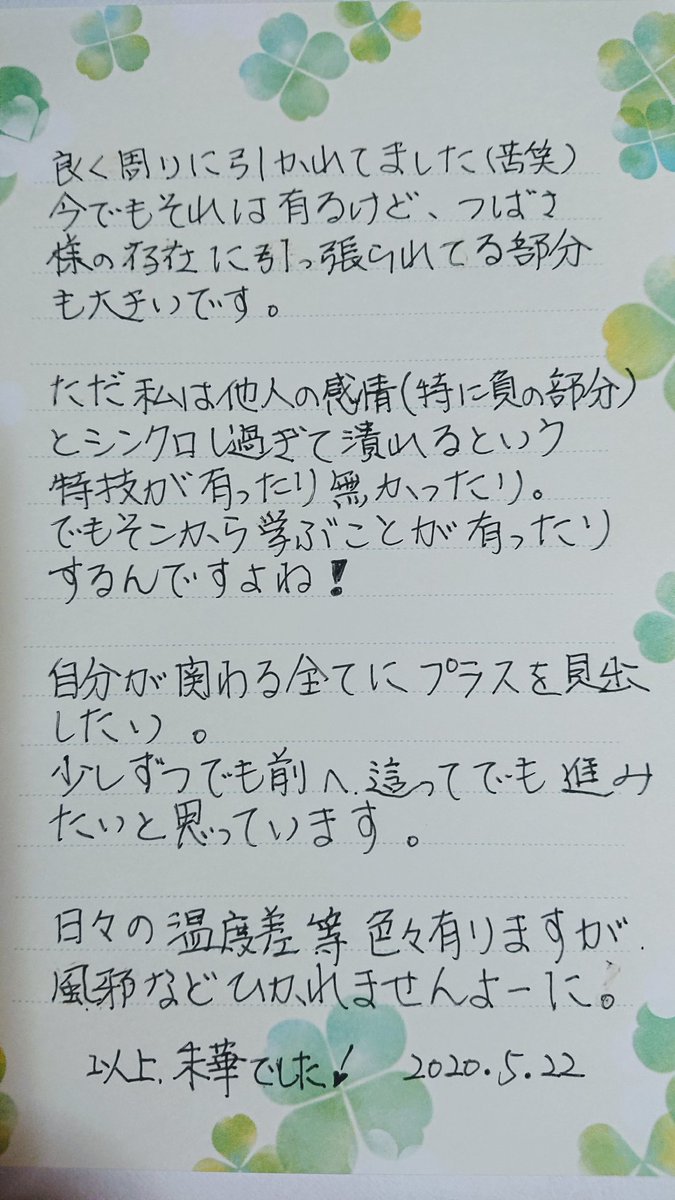 良く周りに引かれてました(苦笑)
今でもそれは有るけど、つばさ
様の存在に引っ張られてる部分
も大きいです。
ただ私は他人の感情(特に負の部分)
とシンクロし過ぎて潰れるという
特技が有ったり無かったり。
でもそこから学ぶことが有ったり
するんですよね!
自分が関わる全てにプラスを見出
したい。
少しずつでも前へ、這ってでも進み
たいと思っています。
日々の温度差等色々有りますが、
風邪などひかれませんよーに。
以上、朱華でした! 2020.5.22